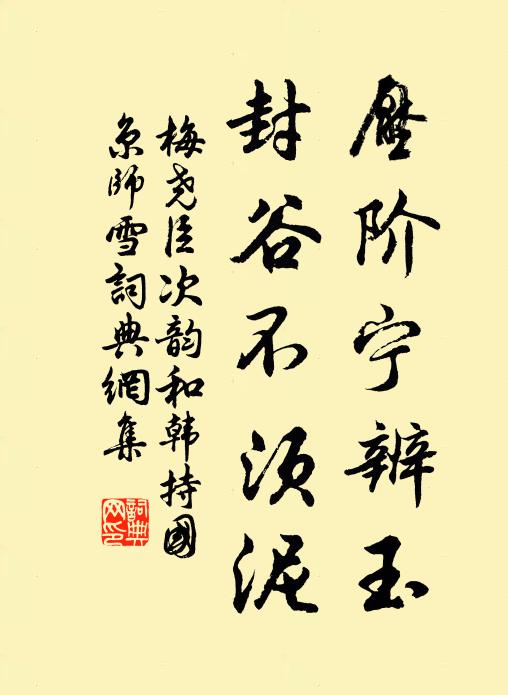 压阶宁辨玉
封谷不须泥
梅尧臣次韵和韩持國
京師雪詞典網集
詞典
网印